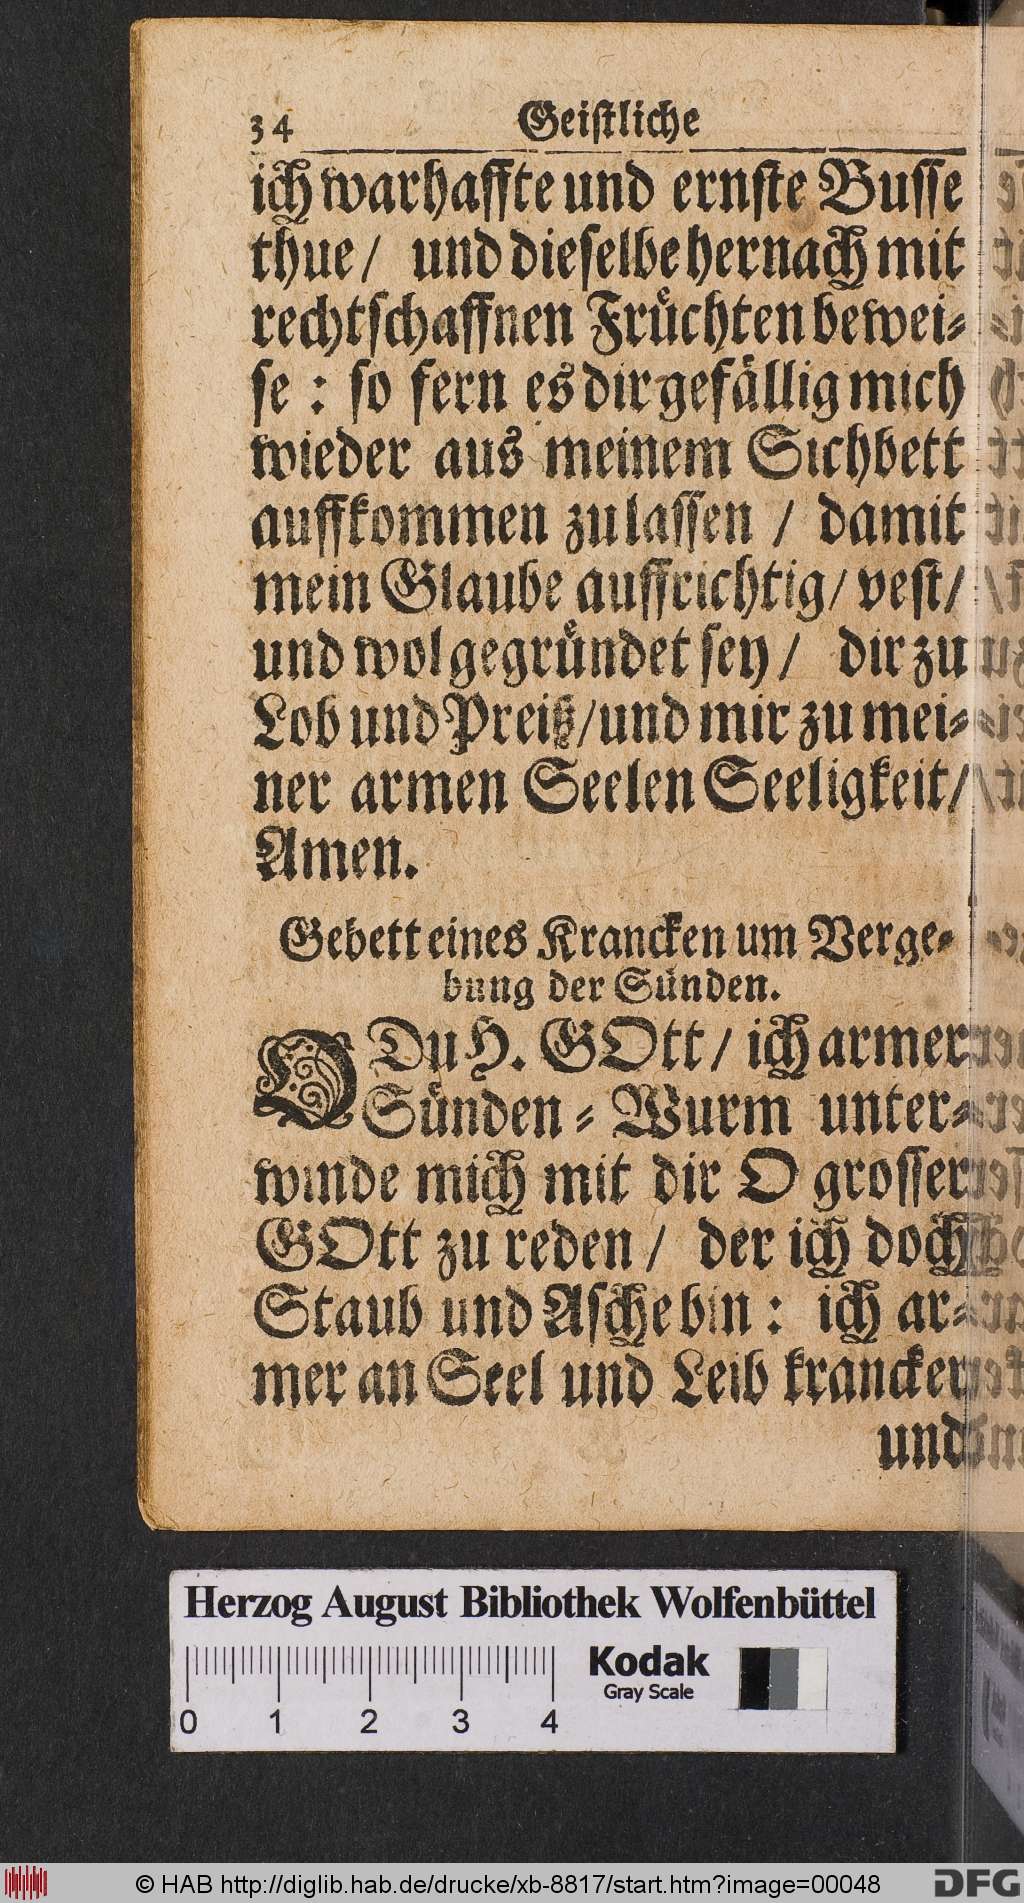 34 Geiſtliche
ich warhaffte und ernſte Buſſe
thue / und dieſelbe hernach mit
rechtſchaffnen Fruͤchten bewei⸗
ſe : ſo fern es dir gefaͤllig mich
wieder aus meinem Sichbett
auffkommen zu laſſen / damit
mein Glaube auffrichtig / veſt /
und wol gegruͤndet ſey / dir zu
Lob und Preiß / und mir zu mei⸗
ner armen Seelen Seeligkeit /
Amen.
Gebett eines Krancken um Verge⸗
bung der Suͤnden.
O Du H. GOtt / ich armer
Suͤnden⸗Wurm unter⸗
winde mich mit dir O groſſer
GOtt zu reden / der ich doch
Staub und Aſche bin : ich ar⸗
mer an Seel und Leib krancker
und
Herzog August Bibliothek Wolfenbüttel
Kodak
Gray Scale
0 1 2 3 4
© HAB http://diglib.hab.de/drucke/xb-8817/start.htm?image=00048
DFG